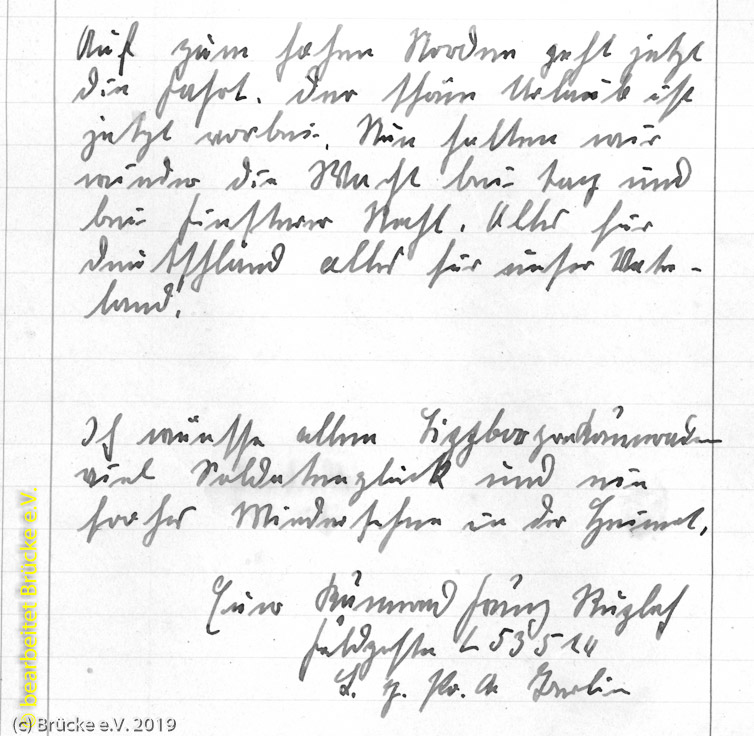 Auf zum hohen Norden geht jetzt
die Fahrt. Der schöne Urlaub ist
jetzt vorbei. Nun halten wir
wieder die Wacht bei Tag und
bei finsterer Nacht. Alles für
Deutschland alles für unser Vater-
land!
Ich wünsche allen Lippborger Kameraden
viel Soldatenglück und ein
frohes Wiedersehen in der Heimat.
Euer Kamerad Franz
Feldpostnr L 53514
L. g. Pa. A Berlin
© bearbeitet Brücke e.V.
(c) Brücke e.V. 2019